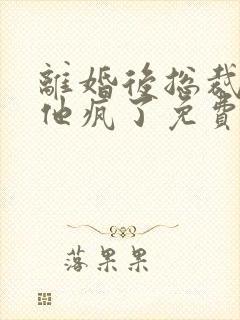 離婚後總裁
他瘋了免費
落果果